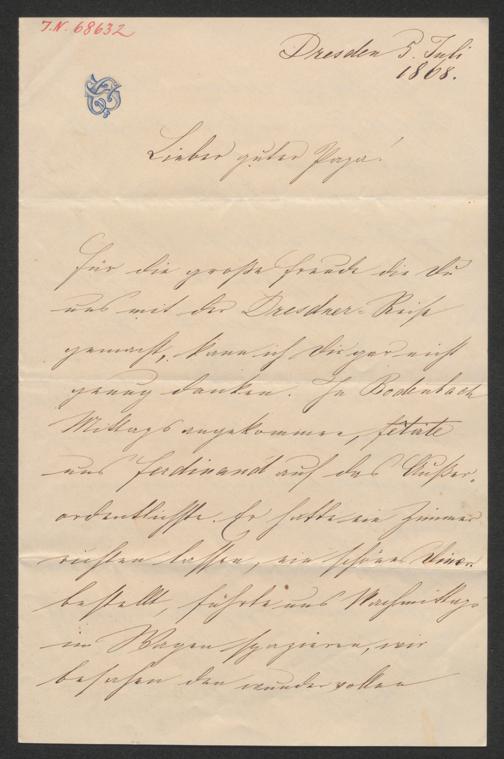 J.N. 68632
Dresden 5. Juli
1868.
Lieber guter Papa!
Für die große Freude die Du
uns mit der Dresdner-Reise
gemacht, kann ich Dir gar nicht
genug danken. In Bodenbach
Mittags angekommen, fététe
uns Ferdinand auf das Außer-
ordentlichste. Er hatte ein Zimmer
richten lassen, ein schönes Diner
bestellt, führte uns Nachmittags
im Wagen spazieren, wir
besahen den wundervollen